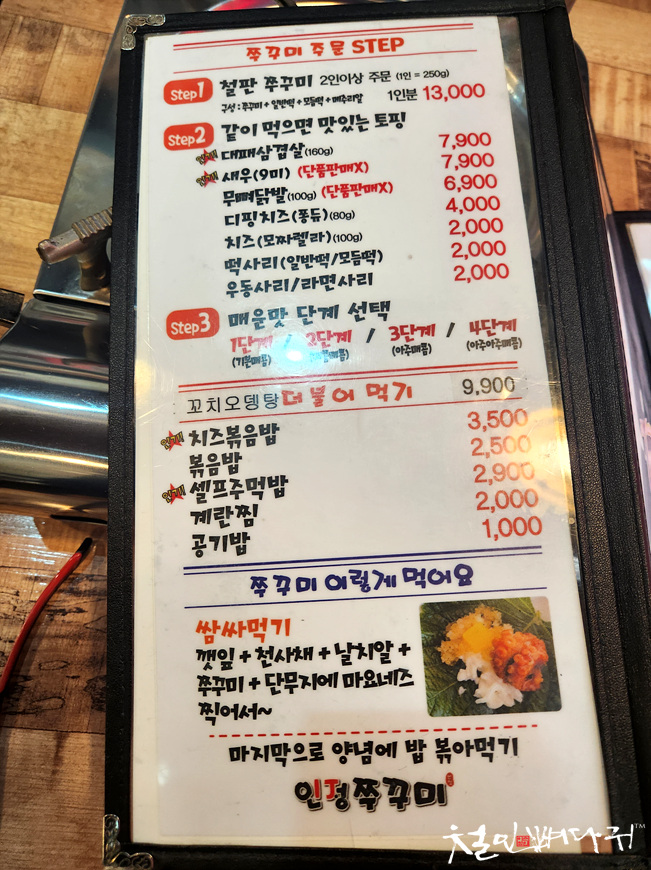 쭈꾸미 주문 STEP
Step1 철판 쭈꾸미 2인이상 주문 (1인 = 250g)
구성 : 쭈꾸미 + 일반떡 + 모듬떡 + 메추리알 1인분 13,000
Step2 같이 먹으면 맛있는 토핑
인기! 대패삼겹살(160g) 7,900
인기! 새우(9미) (단품판매X) 7,900
무뼈닭발(100g) (단품판매X) 6,900
디핑치즈(퐁듀)(80g) 4,000
치즈(모짜렐라)(100g) 2,000
떡사리(일반떡/모듬떡) 2,000
우동사리/라면사리 2,000
Step3 매운맛 단계 선택
1단계 / 2단계 / 3단계 / 4단계
(기본매콤) (아주매콤) (아주아주매콤)
꼬치오뎅탕 더불어 먹기 9,900
인기! 치즈볶음밥 3,500
볶음밥 2,500
인기! 셀프주먹밥 2,900
계란찜 2,000
공기밥 1,000
쭈꾸미 이렇게 먹어요
쌈싸먹기
깻잎 + 천사채 + 날치알 +
쭈꾸미 + 단무지에 마요네즈
찍어서~
마지막으로 양념에 밥 볶아먹기
인정쭈꾸미
철인뼈다귀 TM